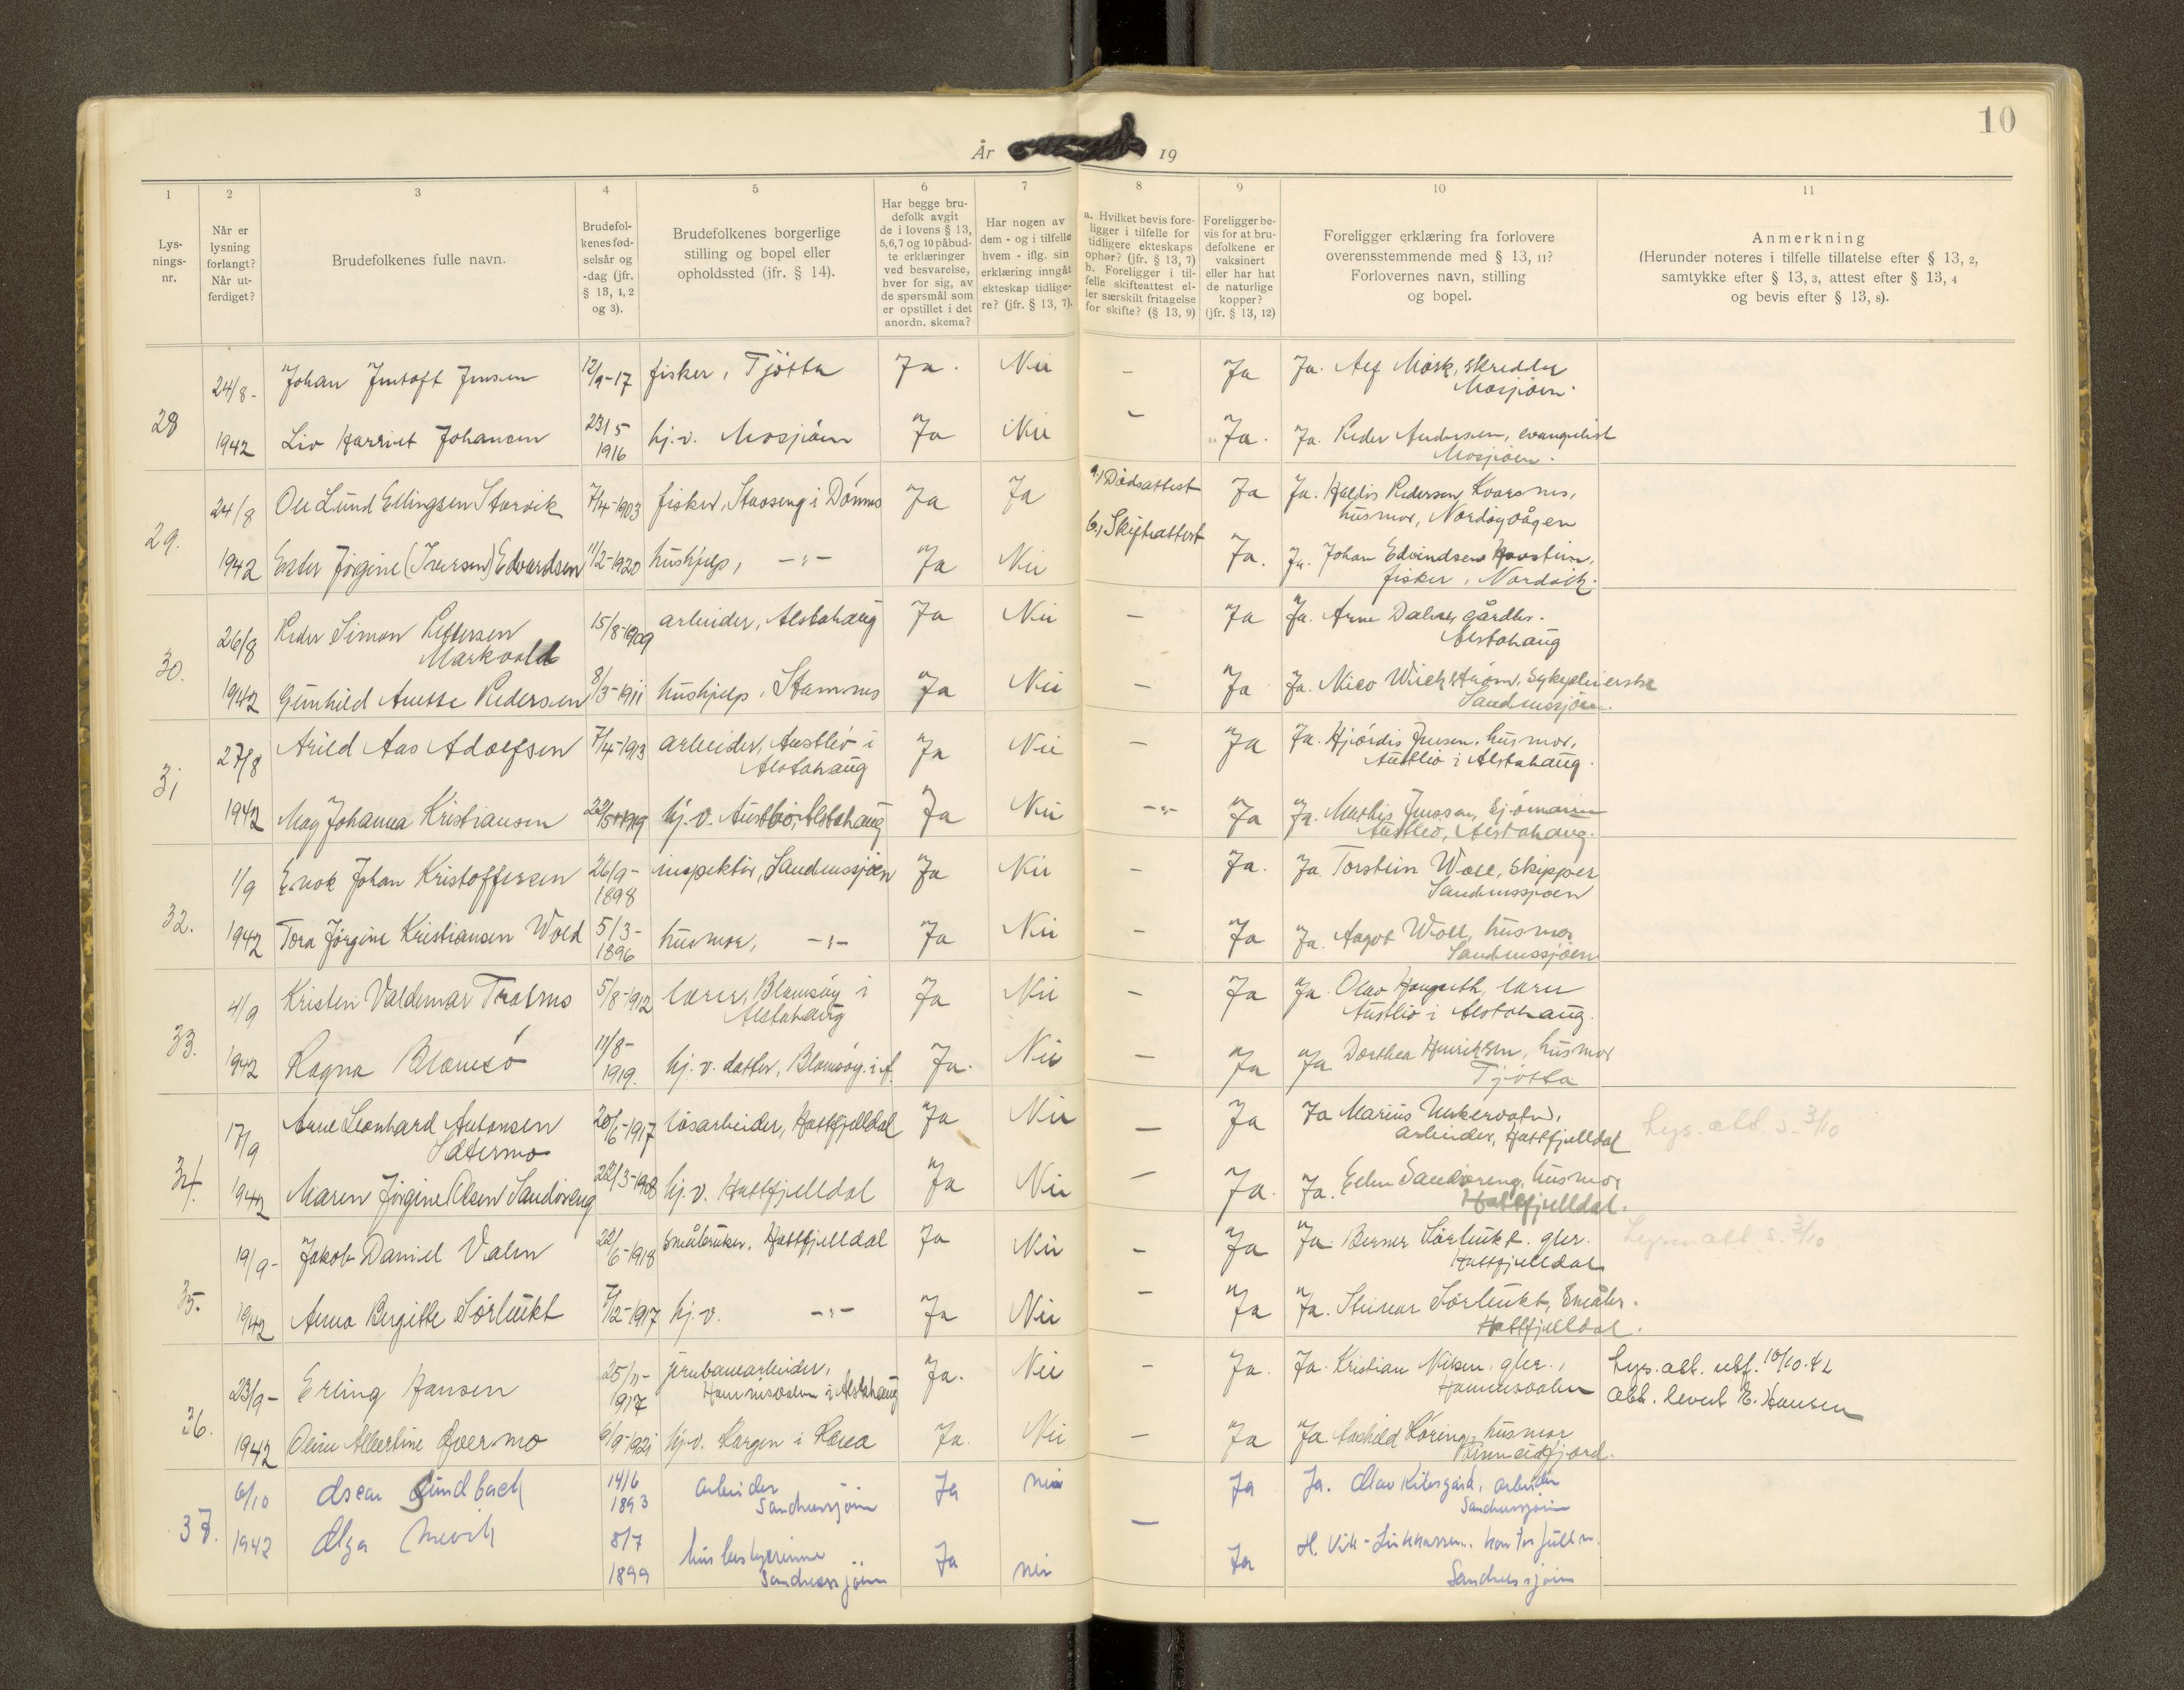 10
År 19
1 2 3 4 5 6 7 8 9 10 11
Lys-
nings-
nr.
Når er
lysning
forlangt?
Når ut-
ferdiget?
Brudefolkenes fulle navn.
Brudefol-
kenes fød-
selsår og
-dag (jfr.
§ 13, 1, 2
og 3).
Brudefolkenes borgerlige
stilling og bopel eller
opholdssted (jfr. § 14).
Har begge bru-
defolk avgit
de i lovens § 13,
5,6,7 og 10 påbud-
te erklæringer
ved besvarelse,
hver for sig, av
de spørsmål som
er opstillet i det
anordn. skema?
Har nogen av
dem - og i tilfelle
hvem - iflg. sin
erklæring inngåt
ekteskap tidlige-
re? (jfr. § 13, 7).
a. Hvilket bevis fore-
ligger i tilfelle for
tidligere ekteskaps
ophør? (jfr. § 13, 7)
b. Foreligger i til-
felle skifteattest el-
ler særskilt fritagelse
for skifte? (§ 13, 9)
Foreligger be-
vis for at bru-
defolkene er
vaksinert
eller har hat
de naturlige
kopper?
(jfr. § 13, 12)
Foreligger erklæring fra forlovere
overensstemmende med § 13, 11?
Forlovernes navn, stilling
og bopel.
Anmerkning
(Herunder noteres i tilfelle tillatelse efter § 13, 2,
samtykke efter § 13, 3, attest efter § 13, 4
og bevis efter § 13, 8).
28
24/8- Johan Jentoft Jensen 12/9-17 fisker, Tjötta Ja. Nei – Ja Ja. Alf Mosk, skredder
Mosjöen.
1942 Liv Harriet Johansen 23/5 1916 hj.v. Mosjöen Ja Nei – Ja. Ja. Peder Andersen, evangelist
Mosjöen.
29.
24/8 Ole Lund Ellingsen Storvik 7/4-1903 fisker, Stavseng i Dönnes Ja Ja a.) Dödsattest Ja Ja. Haldis Pedersen, Kvarsnes,
husmor, Nordöyvågen
1942 Ester Jörgine (Iversen) Edvardsen 11/2-1920 hushjelp, -"- Ja Nei b.) Skifteattest Ja. Ja. Johan Edvindsen
fisker, Nordvik.
30.
26/8 Peder Simon Pettersen
Markvold 15/8-1909 arbeider, Alstahaug Ja Nei – Ja Ja. Arne Dalsnes gårdbr.
Alstahaug
1942 Gunhild Anette Pedersen 8/3-1911 hushjelp, Stamnes Ja Nei – Ja Ja. Nico Wickström, Sykepleierske
Sandnessjöen.
31
27/8 Arild Aas Adolfsen 7/4-1913 arbeider, Austbö i
Alstahaug Ja Nei – Ja Ja. Hjördis Jensen, husmor,
Austbö i Alstahaug.
1942 May Johanna Kristiansen 22/5-1919 hj.v. Austbö, Alstahaug Ja Nei -"- Ja Ja. Mathis Jenssen, Sjömann
Austbö, Alstahaug.
32.
1/9 Enok Johan Kristoffersen 26/9- 1898 inspektör, Sandnessjöen Ja Nei – Ja. Ja. Torstein Woll, Skipper
Sandnessjöen
1942 Tora Jörgine Kristiansen Wold 5/3- 1896 husmor, -"- Ja Nei – Ja Ja. Aagot Woll, husmor
Sandnessjöen
33.
4/9 Kristen Valdemar Trælnes 5/8-1912 lærer, Blomsöy i
Alstahaug Ja Nei – Ja Ja. Olav Haugseth, lærer
Austbö i Alstahaug.
1942 Ragna Blomsö 11/8- 1919. hj.v. datter, Blomsöy i A. Ja. Nei – Ja Ja Dorthea Henriksen, husmor
Tjötta
34.
17/9 Arne Leonhard Antonsen
Sætermo 20/6-1917 lösarbeider, Hattfjelldal Ja Nei – Ja Ja Marius Unkervatn,
arbeider, Hattfjelldal Lys.att. s. 3/10
1942 Maren Jörgine Olsen Sandöreng 22/3-1908 hj.v. Hattfjelldal Ja Nei – Ja. Ja. Ellen Sandöreng, husmor
Hattfjelldal.
35.
19/9- Jakob Daniel Valen 22/6-1918 småbruker, Hattfjelldal Ja Nei – Ja Ja. Berner Sörbukt. gbr.
Hattfjelldal Lysn att s. 3/10
1942 Anna Bergitte Sörbukt 7/12-1917 hj.v. -"- Ja Nei – Ja Ja. Steinar Sörbukt, Småbr.
Hattfjelldal.
36.
23/9- Erling Hansen 25/11- 1917 jernbanearbeider,
i Alstahaug Ja. Nei – Ja. Ja. Kristian Nilsen, gbr., Lys.att. utf. 10/10.42
Att. levert E. Hansen
1942 Oline Albertine Övermo 6/9-1921 hj.v. i Rana Ja. Nei – Ja Ja. husmor
Finneidfjord.
37.
6/10 Oscar Sundbach 14/6 1893 arbeider
Sandnessjöen Ja nei – Ja Ja. Olav Kilsgård, arbeider
Sandnessjöen
1942 Olga Mevik 8/7 1899 husbestyrerinne
Sandnessjöen Ja nei Ja H. Vik-
Sandnessjöen